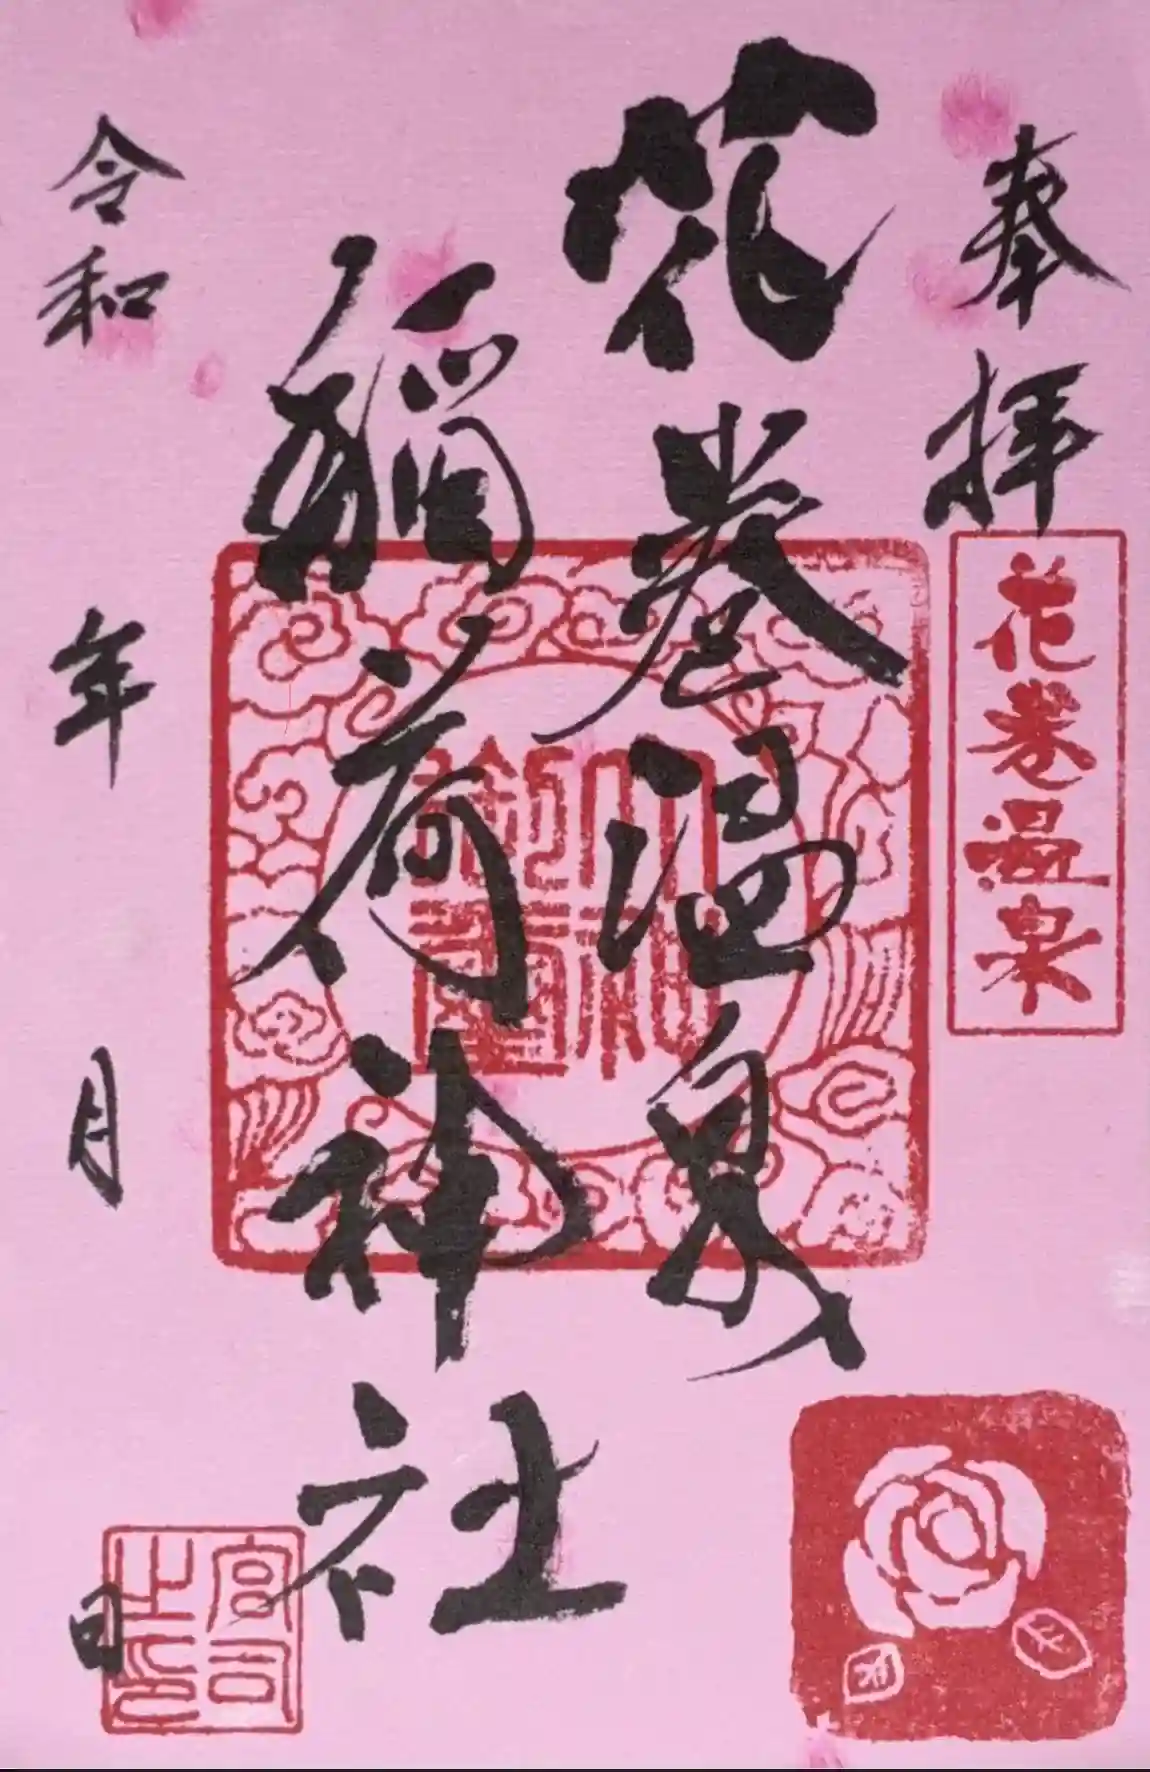 奉拝
花巻温泉
花巻温泉
稲荷神社
令和 年 月 日
宮司之印